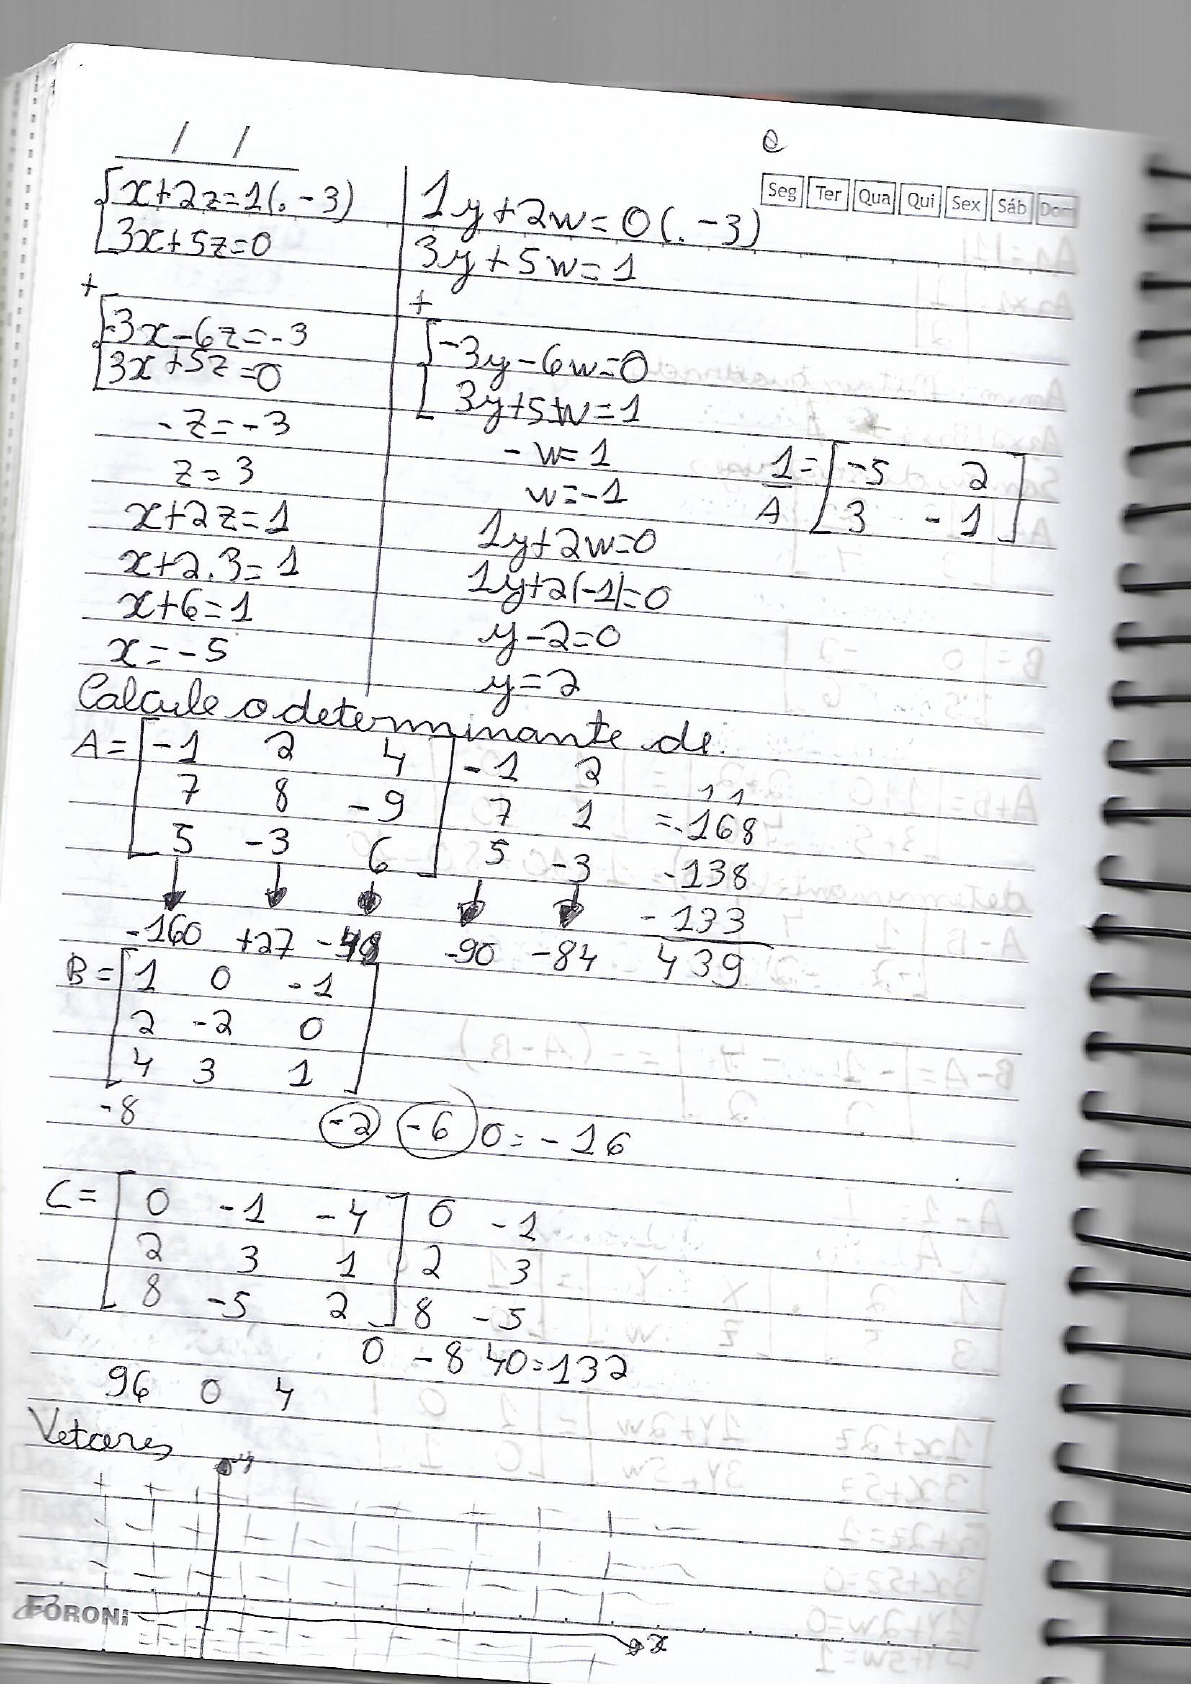 Seg Ter Qua Qui Sex Sáb Dom
x+2z=1(.-3)
3x+5z=0
+
-3x-6z=-3
3x+5z=0
-z=-3
z=3
x+2z=1
x+2.3=1
x+6=1
x=-5
1y+2w=0(.-3)
3y+5w=1
+
-3y-6w=0
3y+5w=1
-w=1
w=-1
1y+2w=0
1y+2(-1)=0
y-2=0
y=2
1 = [-5 2]
A [3 -1]
Calcule o determinante de:
A= [-1 2 4] -1 2
[7 8 -9] 7 1 =-168
[5 -3 6] 5 -3 -138
-133
-160 +27 -90 -84 439
B= [1 0 -1]
[2 -2 0]
[4 3 1]
-8 -2 -6 0=-16
C= [0 -1 -4] 0 -1
[2 3 1] 2 3
[8 -5 2] 8 -5
0 -8 40=132
96 0 4
Vetores
y
x
FORONI